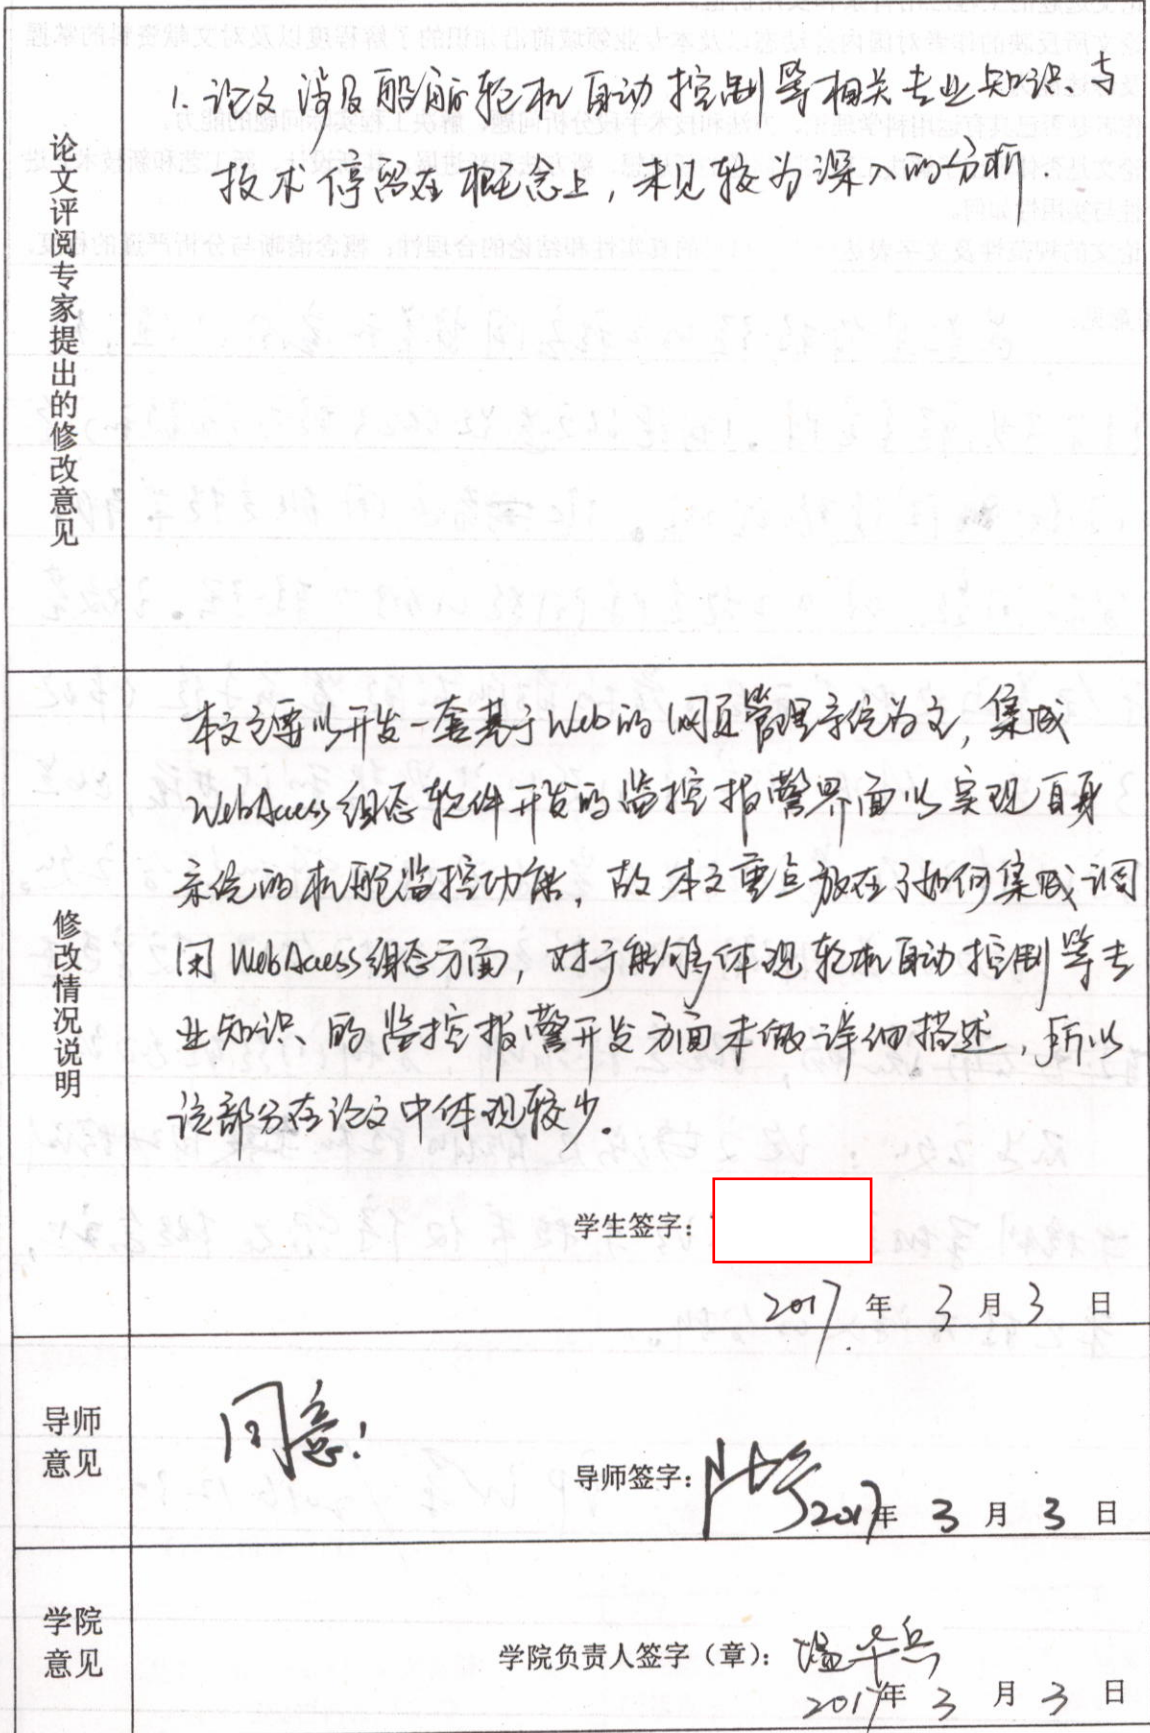 论文评阅专家提出的修改意见
1. 论文涉及船舶轮机自动控制等相关专业知识、与
技术停留在概念上，未见较为深入的分析.
修改情况说明
本文主要以开发一套基于Web的网页管理系统为主，集成
WebAccess组态软件开发的监控报警界面以实现自身
系统的机舱监控功能，故本文重点放在了如何集成调
用WebAccess组态方面，对于能够体现轮机自动控制等专
业知识、的监控报警开发方面未做详细描述，所以
该部分在论文中体现较少。
学生签字：
2017 年 3 月 3 日
导师
意见
同意！
导师签字：
2017年 3 月 3 日
学院
意见
学院负责人签字（章）：温华兵
2017年 3 月 3 日